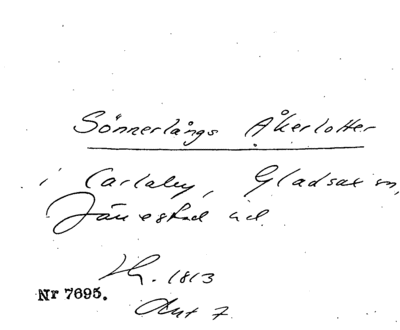 Sönnerlångs Åkerlotter
i Carlaby, Gladsax sn,
Järrestad hd.
1813
Nr 7695.
Akt 7